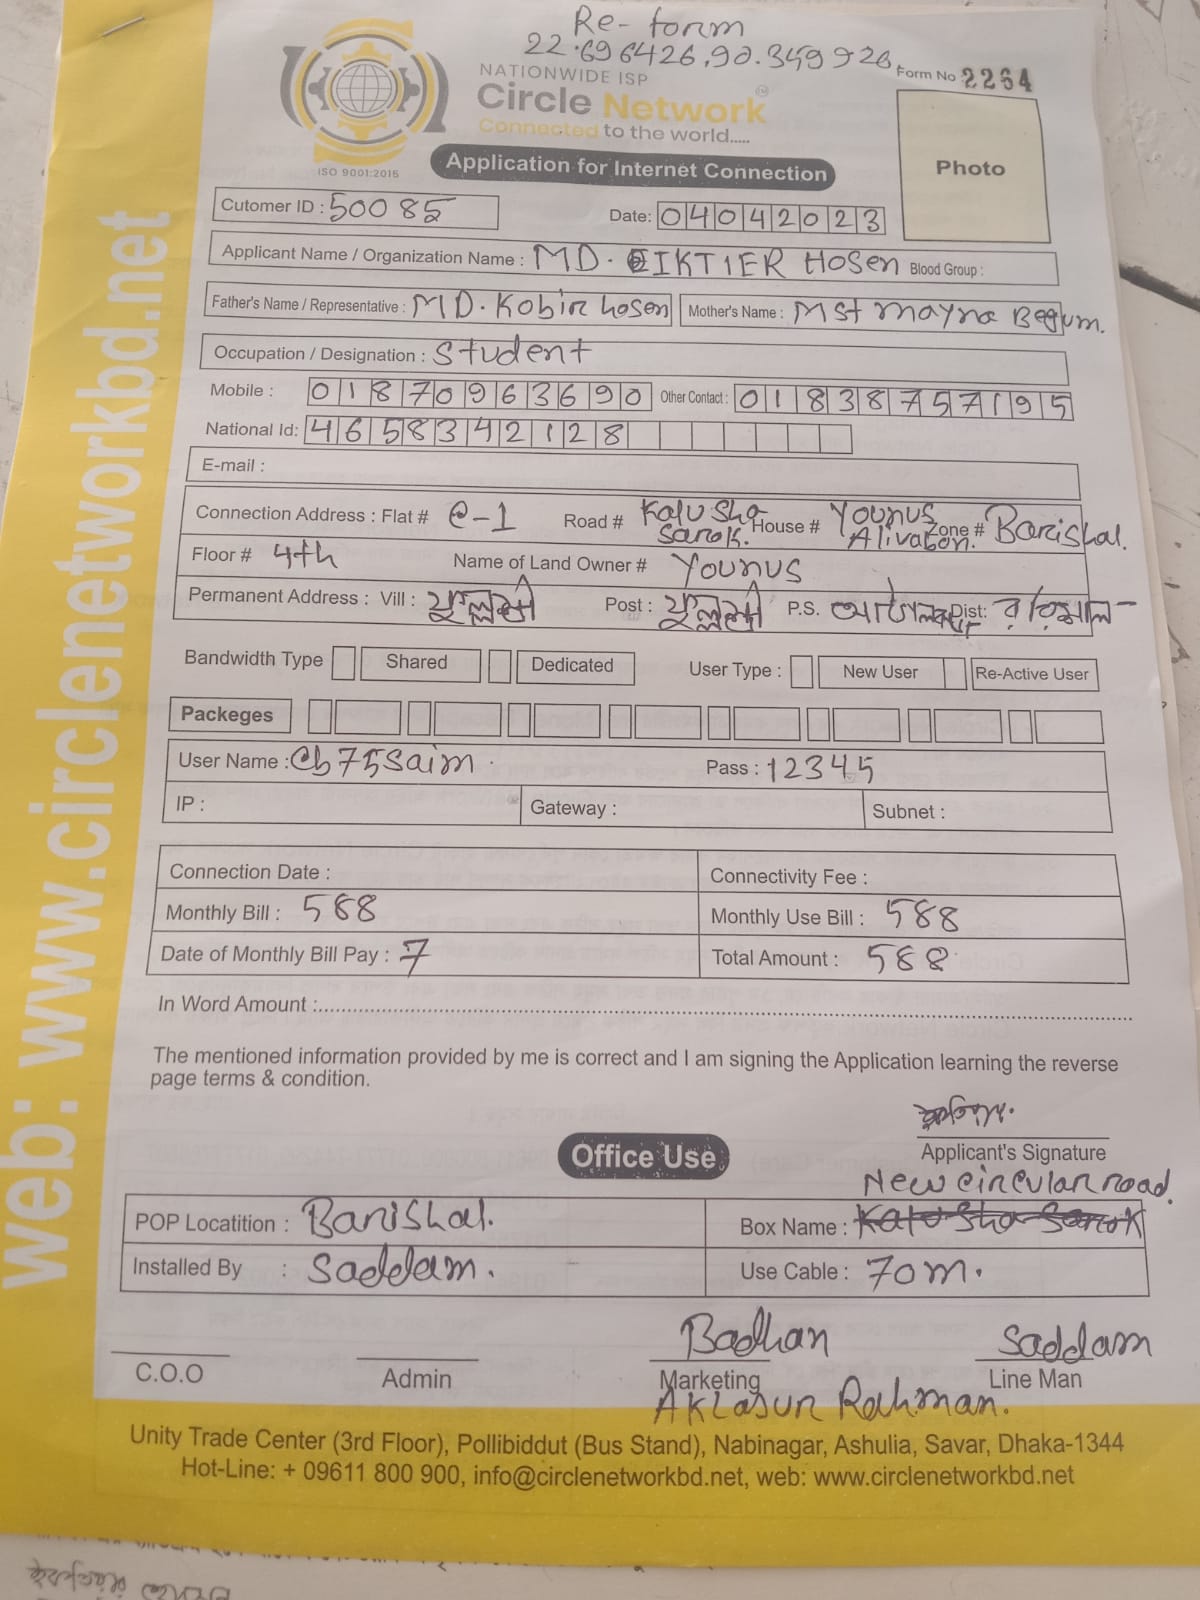 Re-form
22.696426,90.359926
NATIONWIDE ISP
Form No 2264
Circle Network
Connected to the world.....
ISO 9001:2015
Application for Internet Connection
Photo
Cutomer ID : 50085
Date: 04042023
Applicant Name / Organization Name : MD. EIKTIER Hosen Blood Group :
Father's Name / Representative : MD. Kobir hosen Mother's Name : Mst mayna Begum.
Occupation / Designation : Student
Mobile : 01870963690 Other Contact : 01838757195
National Id: 4658342128
E-mail :
Connection Address : Flat # C-1 Road # Kalu Sha Sarok. House # Younus Alivabon. Zone # Barishal.
Floor # 4th Name of Land Owner # Younus
Permanent Address : Vill : ফুল্লশ্রী Post : ফুল্লশ্রী P.S. Dist:
Bandwidth Type Shared Dedicated User Type : New User Re-Active User
Packeges
User Name : Cb75Saim Pass : 12345
IP : Gateway : Subnet :
Connection Date : Connectivity Fee :
Monthly Bill : 588 Monthly Use Bill : 588
Date of Monthly Bill Pay : 7 Total Amount : 588
In Word Amount :
The mentioned information provided by me is correct and I am signing the Application learning the reverse
page terms & condition.
Office Use
Applicant's Signature
New circular road.
POP Locatition : Barishal. Box Name : Kalu Sha Sarok
Installed By : Saddam. Use Cable : 70m.
Badhan Saddam
C.O.O Admin Marketing Line Man
Aklasur Rahman.
Unity Trade Center (3rd Floor), Pollibiddut (Bus Stand), Nabinagar, Ashulia, Savar, Dhaka-1344
Hot-Line: + 09611 800 900, info@circlenetworkbd.net, web: www.circlenetworkbd.net
web: www.circlenetworkbd.net